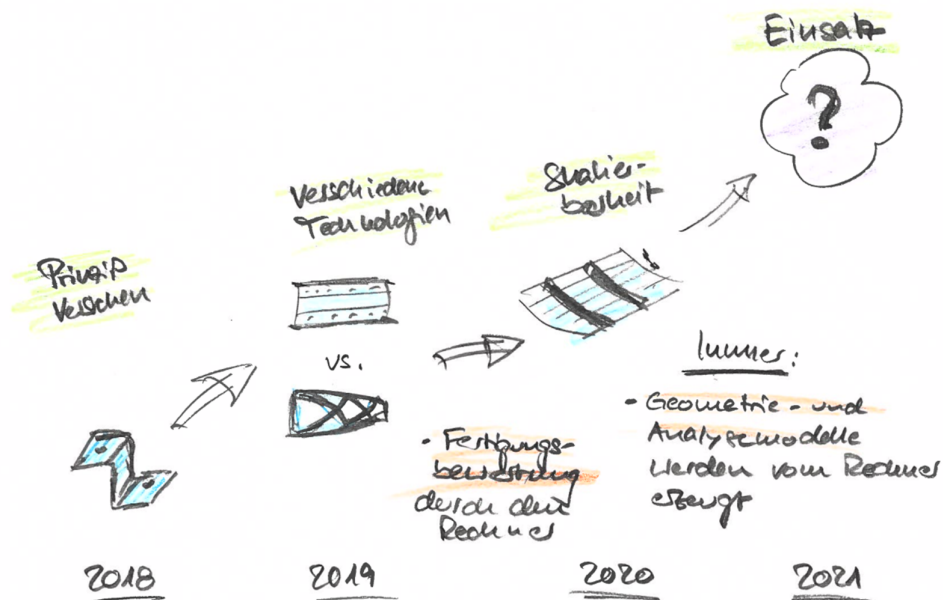 Einsatz
?
Skalier-
barkeit
Verschiedene
Technologien
Prinzip
Verstehen
vs.
Immer:
• Geometrie- und
Analysemodelle
werden vom Rechner
erzeugt
• Fertigungs-
bewertung
durch den
Rechner
2018
2019
2020
2021